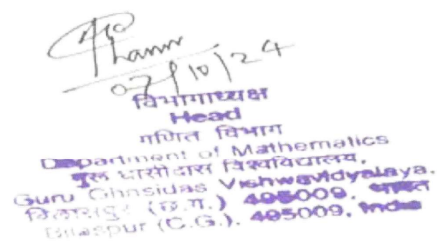 07/10/24
विभागाध्यक्ष
Head
गणित विभाग
Department of Mathematics
घासीदास विश्वविद्यालय,
Guru Ghasidas Vishwavidyalaya.
(छ.ग.) 495009, भारत
Bilaspur (C.G.). 495009, India